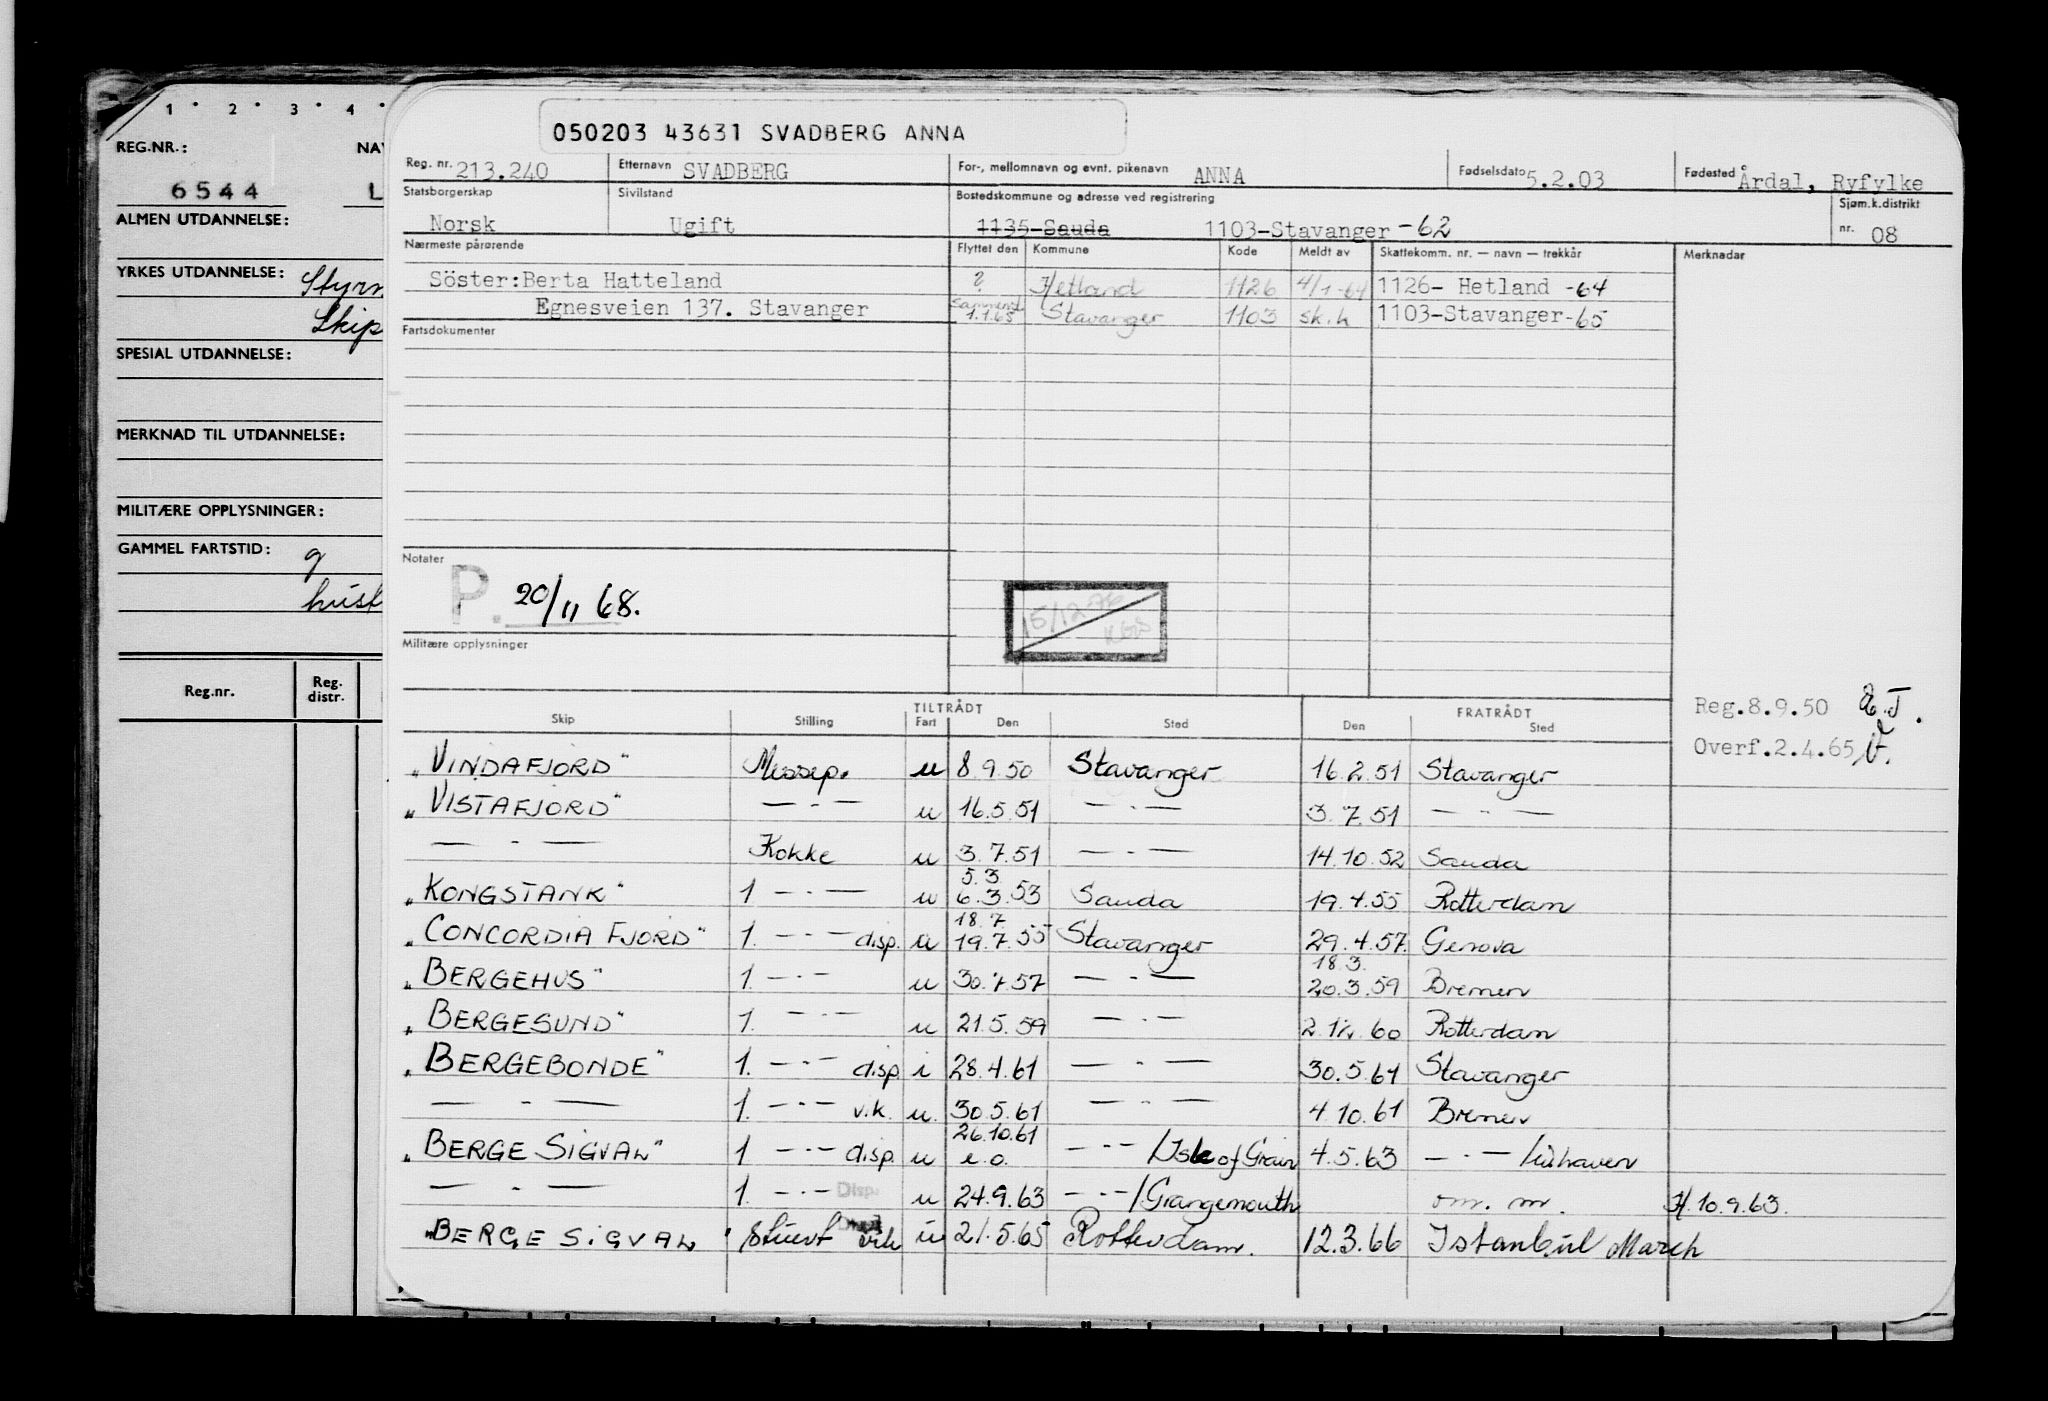 1 · 2 · 3 · 4 ·
REG.NR.:
6544 L
ALMEN UTDANNELSE:
YRKES UTDANNELSE: Styrm
Skip
SPESIAL UTDANNELSE:
MERKNAD TIL UTDANNELSE:
MILITÆRE OPPLYSNINGER:
GAMMEL FARTSTID: 9
Reg.nr. Reg. distr.
050203 43631 SVADBERG ANNA
Reg. nr. 213.240 Etternavn SVADBERG For-, mellomnavn og evnt. pikenavn ANNA Fødselsdato 5.2.03 Fødested Årdal, Ryfylke
Statsborgerskap Sivilstand Bostedskommune og adresse ved registrering Sjøm.k.distrikt
Norsk Ugift 1135-Sauda 1103-Stavanger -62 nr. 08
Nærmeste pårørende Flyttet den Kommune Kode Meldt av Skattekomm. nr. — navn — trekkår Merknadar
Söster:Berta Hatteland ? Hetland 1126 4/1-64 1126- Hetland -64
Egnesveien 137. Stavanger 1.1.65 Stavanger 1103 sk.h 1103-Stavanger-65
Fartsdokumenter
Notater
P. 20/11 68.
15/12-76
Militære opplysninger
Reg.8.9.50
Overf.2.4.65
TILTRÅDT FRATRÅDT
Skip Stilling Fart Den Sted Den Sted
"VINDAFJORD" Messep. u 8.9.50 Stavanger 16.2.51 Stavanger
"VISTAFJORD" — · — u 16.5.51 — · — 3.7.51 — · —
— · — Kokke u 3.7.51 — · — 14.10.52 Sauda
5.3.
"KONGSTANK" 1 — · — u 6.3.53 Sauda 19.4.55 Rotterdam
18.7
"CONCORDIA FJORD" 1. — · — disp. u 19.7.55 Stavanger 29.4.57. Genova
18.3.
"BERGEHUS" 1. — · — u 30.7.57 — · — 20.3.59 Bremen
"BERGESUND" 1. — · — u 21.5.59 — · — 60 Rotterdam
"BERGEBONDE" 1. — · — disp i 28.4.61 — · — 30.5.61 Stavanger
— · — 1. — · — v.k. u. 30.5.61 — · — 4.10.61 Bremen
26.10.61
"BERGE SIGVAL" 1 — · — disp. u e.o. — · — /Isle of Grain 4.5.63 — · —
— · — 1. — · — Disp. u 24.9.63 — · — /Grangemouth om. m. H. 10.9.63.
"BERGE SIGVAL" Stuert vik u 21.5.65 Rotterdam. 12.3.66 Istanbul March